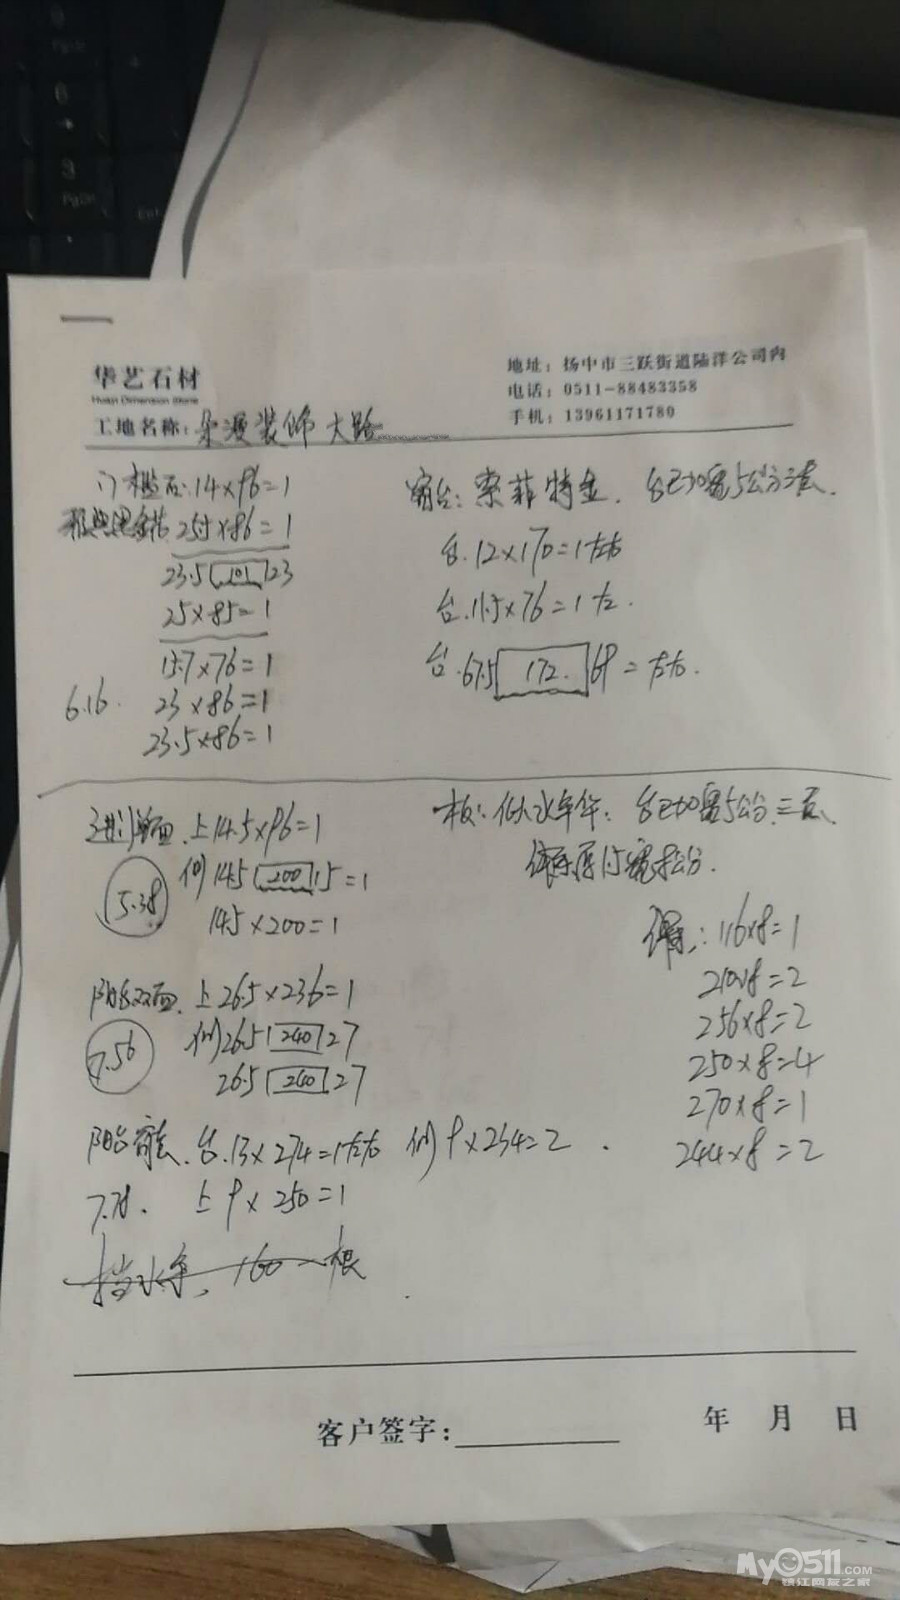 华艺石材
Huayi Dimension Stone
地址：扬中市三跃街道陆洋公司内
电话：0511-88483358
手机：13961171780
工地名称：朵漫装饰 大路
门槛石：14×96=1
25寸×86=1
23.5 101 23
25×85=1
15.7×76=1
6.16. 23×86=1
23.5×86=1
窗台：索菲特金.
台.12×170=1左右
台.11.5×76=1左.
台.67.5 172. 69=左右.
进门单面.上14.5×96=1
5.38
侧14.5 200 15=1
14.5×200=1
阳台双面.上26.5×236=1
7.56
侧26.5 240 27
26.5 240 27
阳台窗套.台.13×274=1左右 侧9×234=2
上9×250=1
挡水条.160一根
板：似水年华：
116×8=1
210×8=2
256×8=2
250×8=4
270×8=1
244×8=2
客户签字：
年 月 日
My0511.COM
镇江网友之家